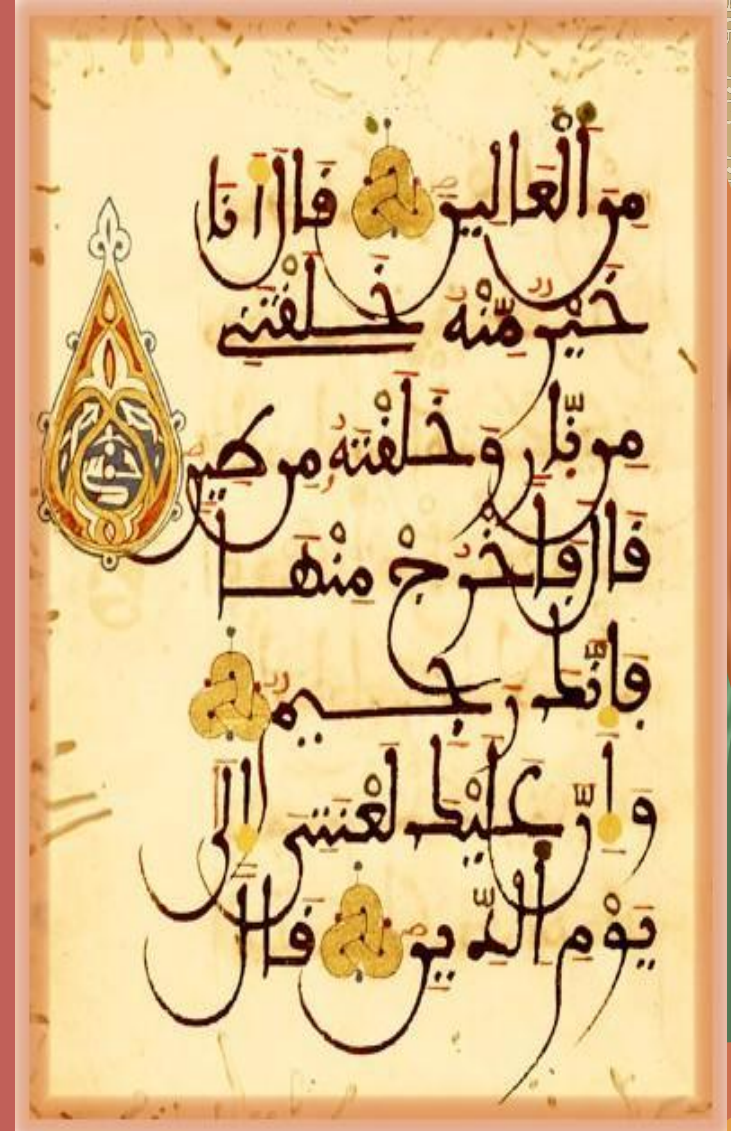 مِنَ اَلْعَالِينَ قَالَ أَنَا
خَيْرٌ مِّنْهُ خَلَقْتَنِي
مِن نّارٍ وَخَلَقْتَهُ مِن طِينٍ
قَالَ فَاخْرُجْ مِنْهَا
فَإِنَّكَ رَجِيمٌ
وَإِنَّ عَلَيْكَ لَعْنَتِي إِلَى
يَوْمِ الدِّينِ قَالَ